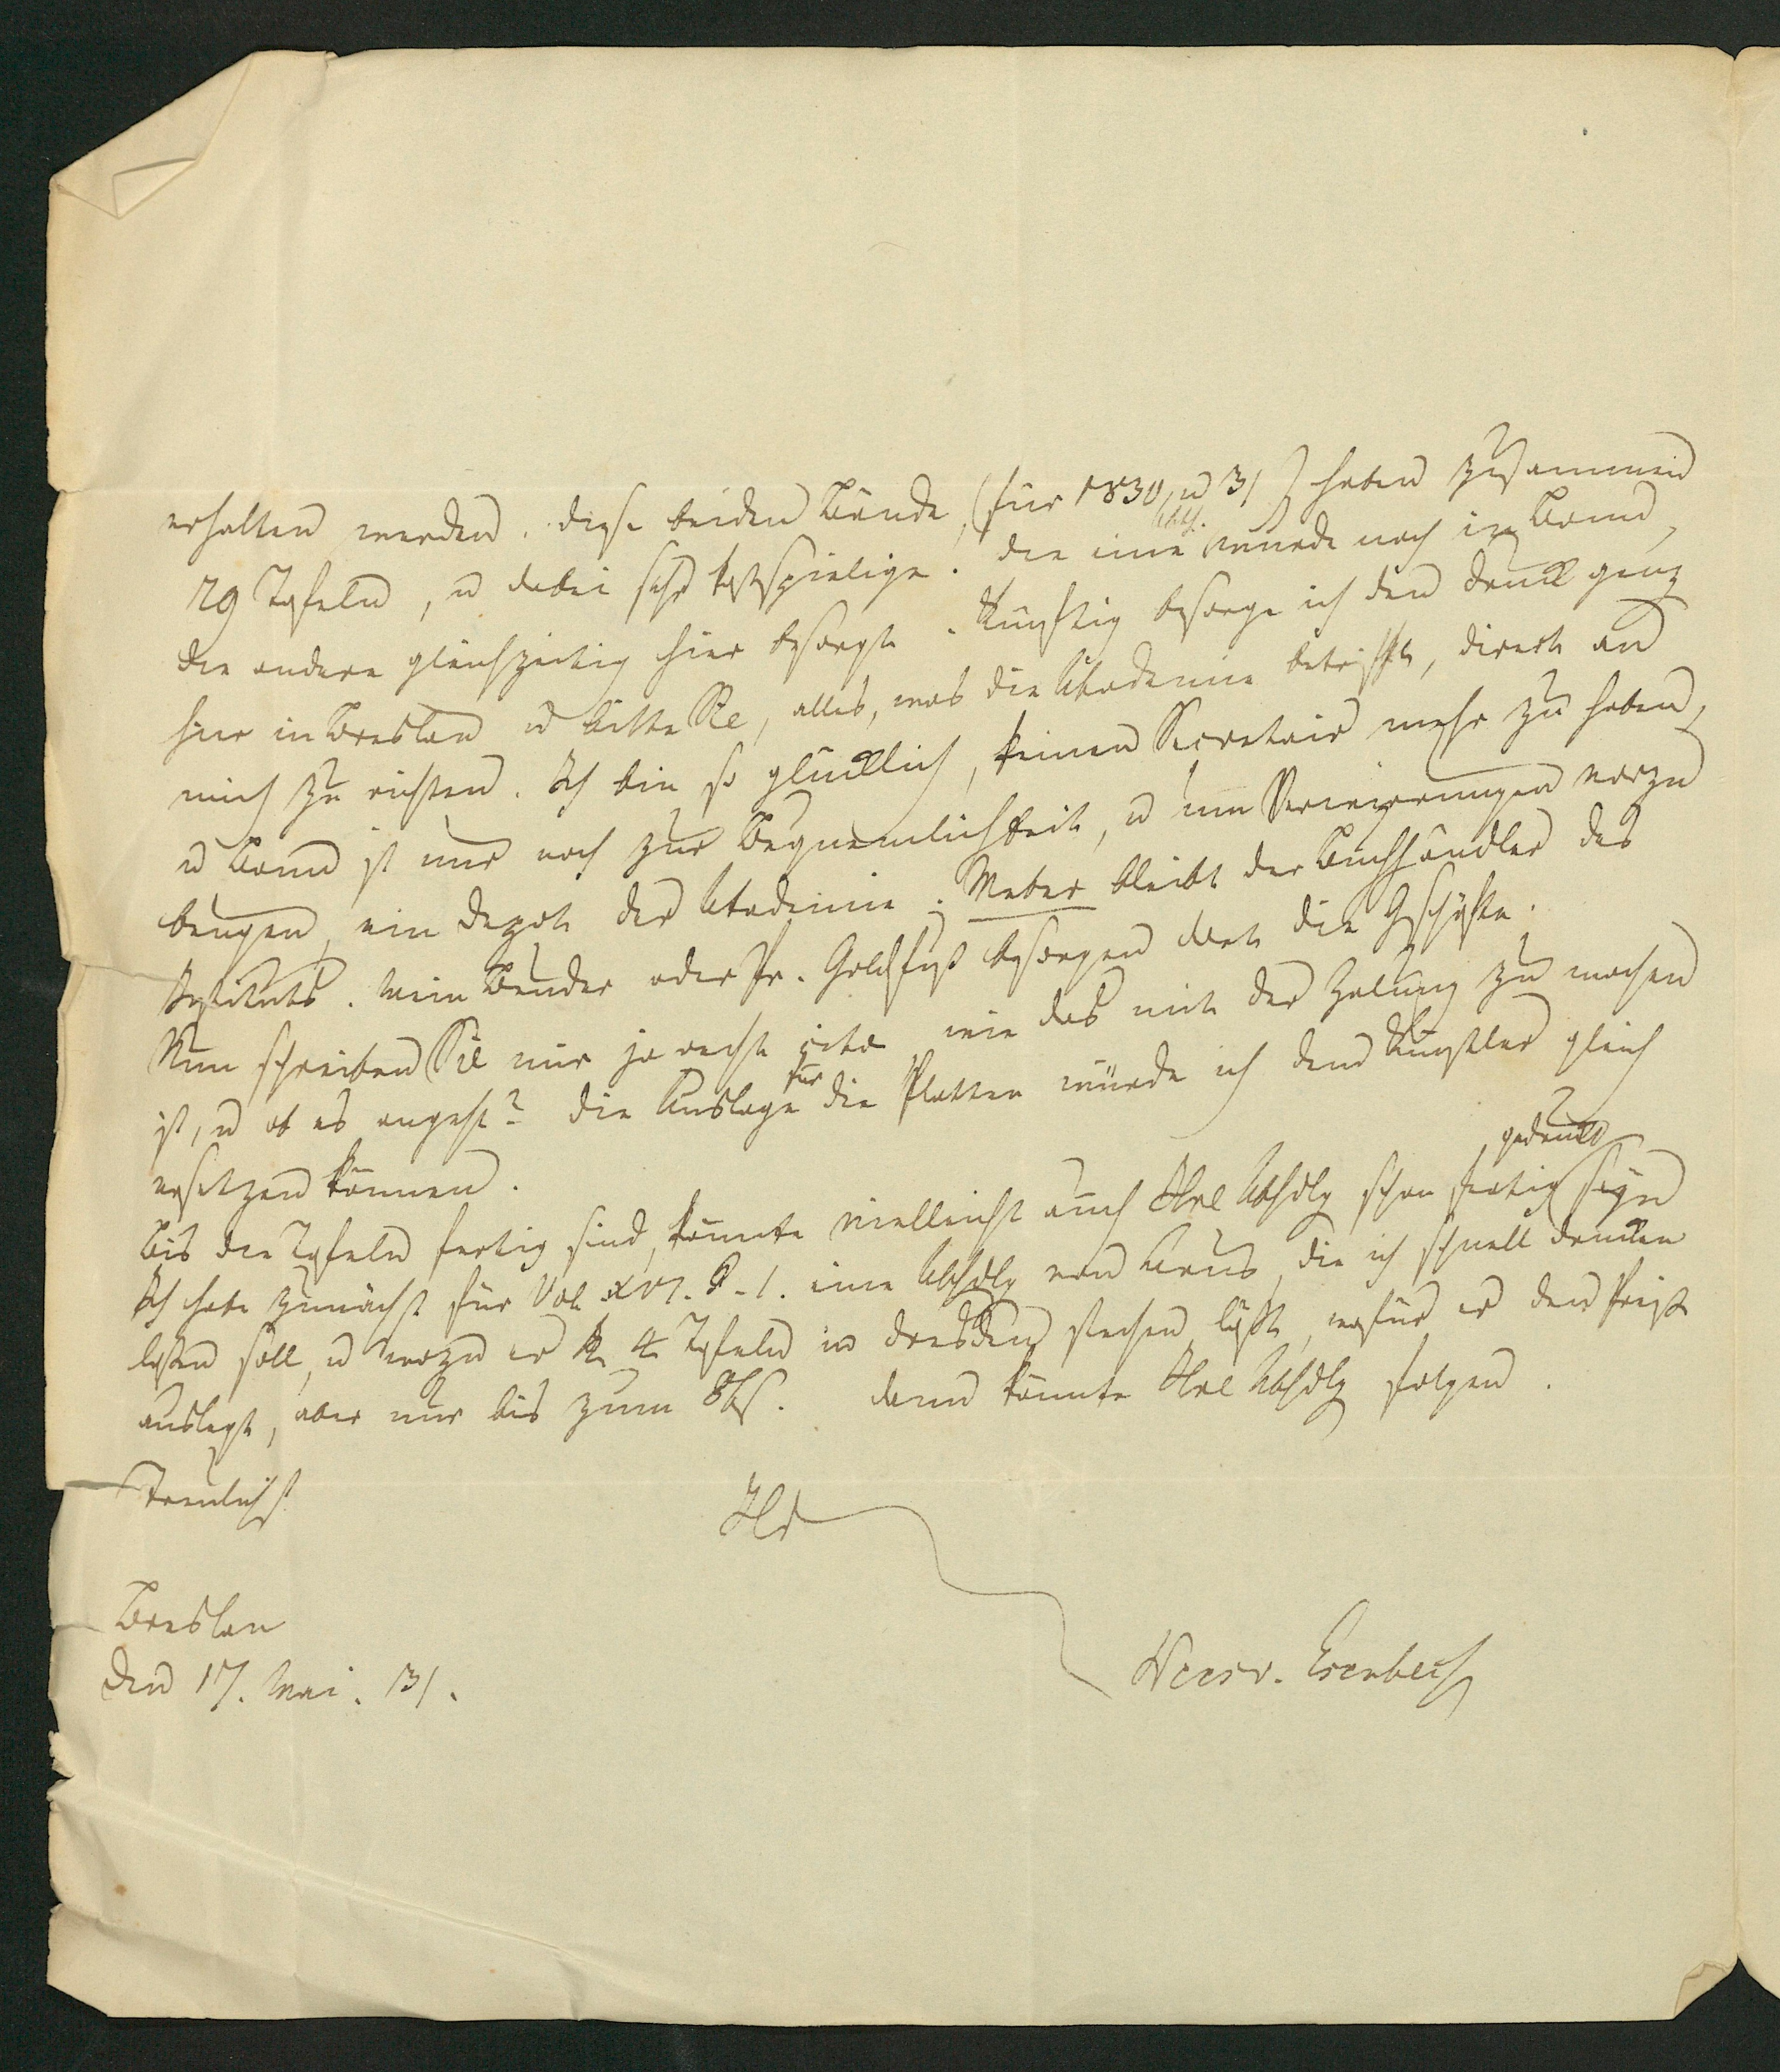 erhalten werden. Diese beiden Bände, (für 1830 u 31) haben zusammen
79 Tafeln, u dabei sehr kostspielige. Die eine Abth. wurde noch in Bonn,
die andere gleichzeitig hier besorgt. Künftig besorge ich den Druck ganz
hier in Breslau u bitte Sie, alles, was die Akademie betrifft, direct an
mich zu richten. Ich bin so glücklich, keinen Secretair mehr zu haben,
u Bonn ist nur noch zur Bequemlichkeit, u um Verwirrungen vorzu
beugen, ein Depot der Akademie. Weber bleibt der Buchhändler des
Instituts. Mein Bruder oder Pr. Goldfuß besorgen dort die Geschäfte.
Nun schreiben Sie mir ja recht cito wie das mit der Zalung zu machen
ist, u ob es angeht? Die Auslage für die Platten würde ich dem Künstler gleich
ersetzen können.
Bis die Tafeln fertig sind, könnte vielleicht auch Ihre Abhdlg schon fertig gedruckt seyn
Ich habe zunächst für Vol. XVI. P. 1. eine Abhdlg von Carus, die ich schnell drucken
lassen soll, u wozu er 4 Tafeln in Dresden stechen läßt, wofür er den Preiß
auslegt, aber nur bis zum 8br. Dann könnte Ihre Abhdlg folgen.
Treulichst
Ihr
Breslau
den 17. Mai. 31.
Nees v. Esenbeck